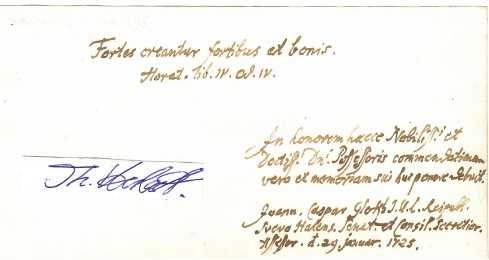 Fortes creantur fortibus et bonis.
Horat. lib. IV. Od. IV.
In honorem haece Nobiliss. et
Doctiss. Dn. Possessoris commendationem
vero et memoriam sui huc ponere debuit.
Th.
Joann. Caspar J.U.L. Reipubl.
Suevo Halens. Senat. et Consil. Secretior.
Assessor. d. 29 Januar. 1725.